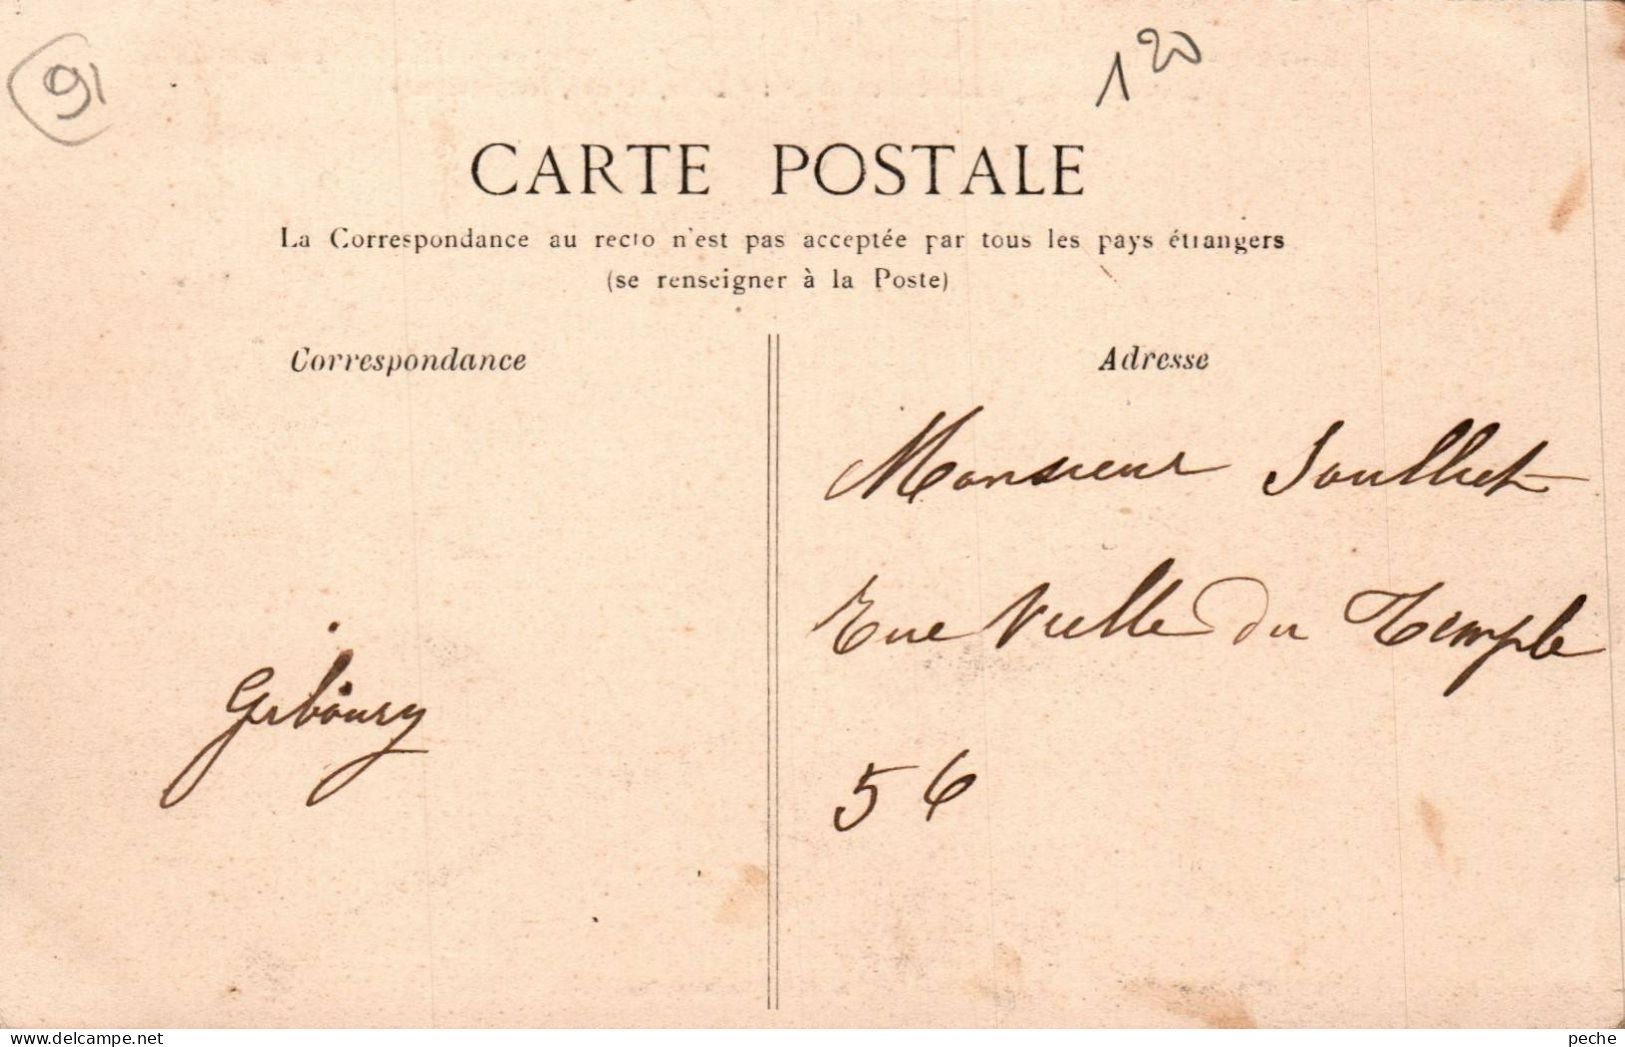 91
1 20
CARTE POSTALE
La Correspondance au recto n'est pas acceptée par tous les pays étrangers
(se renseigner à la Poste)
Correspondance
Adresse
Monsieur Soulliet
Rue Vielle du Temple
56
Giboury
www.delcampe.net
peche